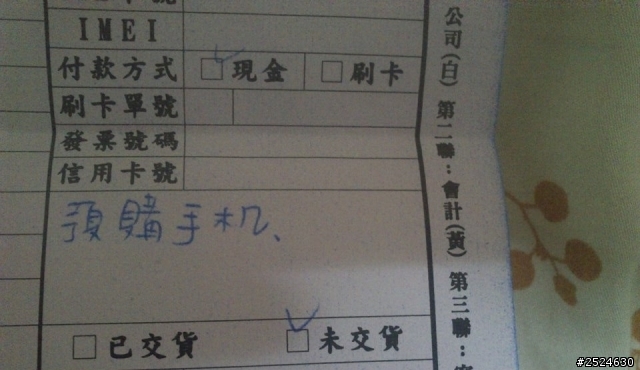 號
IMEI
付款方式 □現金 □刷卡
刷卡單號
發票號碼
信用卡號
預購手机、
□已交貨 □未交貨
公司(白) 第二聯:會計(黃) 第三聯:
#2524630